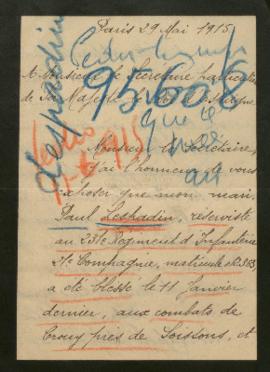 Paris 29 Mai 1915
A Monsieur le Secrétaire particulier
de Sa Majesté le Roi d'Espagne
95608
Lespadin
Monsieur le Secrétaire,
J'ai l'honneur de vous
exposer que mon mari,
Paul Lespadin, réserviste
au 23 Régiment d'Infanterie
21e Compagnie, matricule
a été blessé le 11 Janvier
dernier, aux combats de
Crouy près de Soissons, et